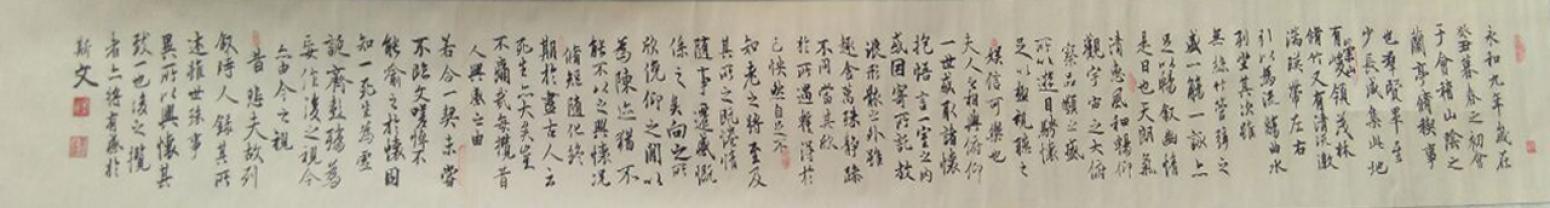 永和九年歲在
癸丑暮春之初會
于會稽山陰之
蘭亭脩稧事
也羣賢畢至
少長咸集此地
有崇山峻領茂林
脩竹又有清流激
湍暎帶左右
引以為流觴曲水
列坐其次雖
無絲竹管弦之
盛一觴一詠亦
足以暢敘幽情
是日也天朗氣
清惠風和暢仰
觀宇宙之大俯
察品類之盛
所以遊目騁懷
足以極視聽之
娛信可樂也
夫人之相與俯仰
一世或取諸懷
抱悟言一室之內
或因寄所託放
浪形骸之外雖
趣舍萬殊靜躁
不同當其欣
於所遇暫得於
己怏然自足不
知老之將至及
其所之既惓情
隨事遷感慨
係之矣向之所
欣俛仰之閒以
為陳迹猶不
能不以之興懷況
脩短隨化終
期於盡古人云
死生亦大矣豈
不痛哉每攬昔
人興感之由
若合一契未嘗
不臨文嗟悼不
能喻之於懷固
知一死生為虛
誕齊彭殤為
妄作後之視今
亦由今之視
昔悲夫故列
敘時人錄其所
述雖世殊事
異所以興懷其
致一也後之攬
者亦將有感於
斯文